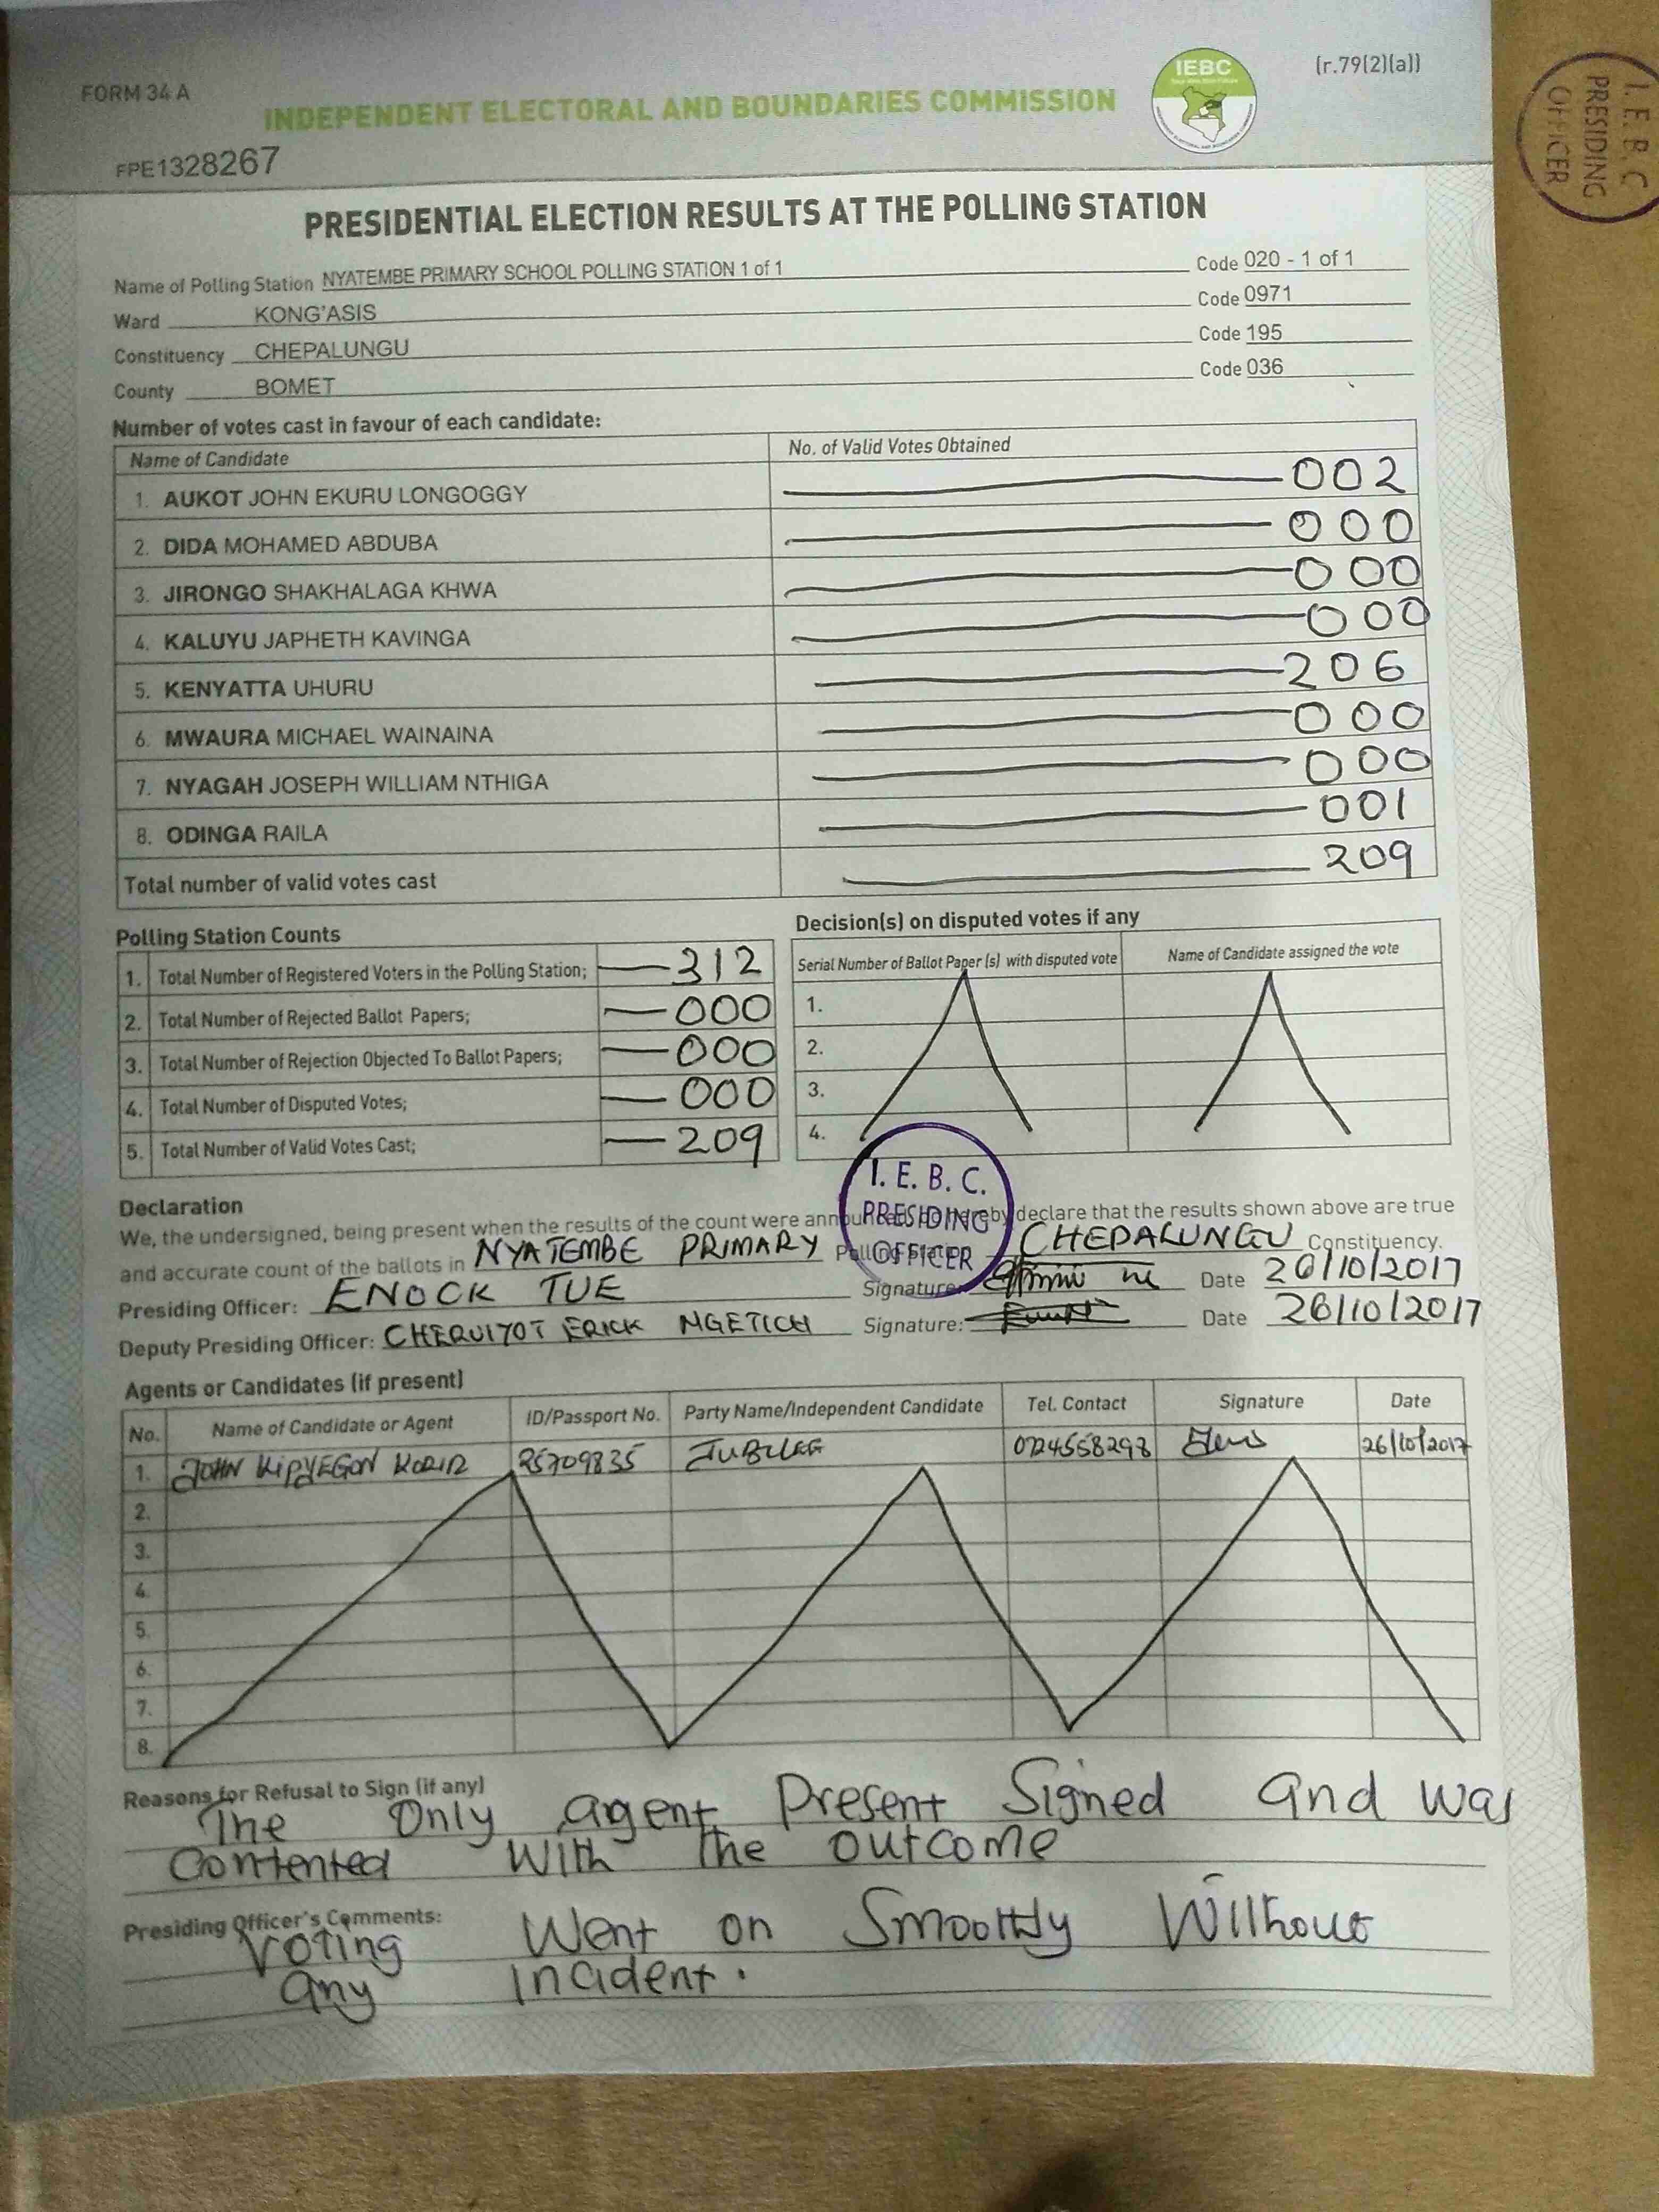 FORM 34 A
INDEPENDENT ELECTORAL AND BOUNDARIES COMMISSION
IEBC
(r.79(2)(a))
FPE1328267
I. E. B. C
PRESIDING
OFFICER
PRESIDENTIAL ELECTION RESULTS AT THE POLLING STATION
Name of Polling Station NYATEMBE PRIMARY SCHOOL POLLING STATION 1 of 1 Code 020 - 1 of 1
Ward KONG'ASIS Code 0971
Constituency CHEPALUNGU Code 195
County BOMET Code 036
Number of votes cast in favour of each candidate:
Name of Candidate No. of Valid Votes Obtained
1. AUKOT JOHN EKURU LONGOGGY 002
2. DIDA MOHAMED ABDUBA 000
3. JIRONGO SHAKHALAGA KHWA 000
4. KALUYU JAPHETH KAVINGA 000
5. KENYATTA UHURU 206
6. MWAURA MICHAEL WAINAINA 000
7. NYAGAH JOSEPH WILLIAM NTHIGA 000
8. ODINGA RAILA 001
Total number of valid votes cast 209
Polling Station Counts
1. Total Number of Registered Voters in the Polling Station; 312
2. Total Number of Rejected Ballot Papers; 000
3. Total Number of Rejection Objected To Ballot Papers; 000
4. Total Number of Disputed Votes; 000
5. Total Number of Valid Votes Cast; 209
Decision(s) on disputed votes if any
Serial Number of Ballot Paper (s) with disputed vote Name of Candidate assigned the vote
1.
2.
3.
4.
I. E. B. C.
PRESIDING
OFFICER
Declaration
We, the undersigned, being present when the results of the count were announced, do hereby declare that the results shown above are true
and accurate count of the ballots in NYATEMBE PRIMARY Polling Station CHEPALUNGU Constituency.
Presiding Officer: ENOCK TUE Signature: Date 26/10/2017
Deputy Presiding Officer: CHERUIYOT ERICK NGETICH Signature: Date 26/10/2017
Agents or Candidates (if present)
No. Name of Candidate or Agent ID/Passport No. Party Name/Independent Candidate Tel. Contact Signature Date
1. JOHN KIPYEGON KORIR 25709835 JUBILEE 0724558298 26/10/2017
2.
3.
4.
5.
6.
7.
8.
Reasons for Refusal to Sign (if any)
The Only agent Present Signed and was
Contented With the outcome
Presiding Officer's Comments:
Voting Went on Smoothly Without
any incident.